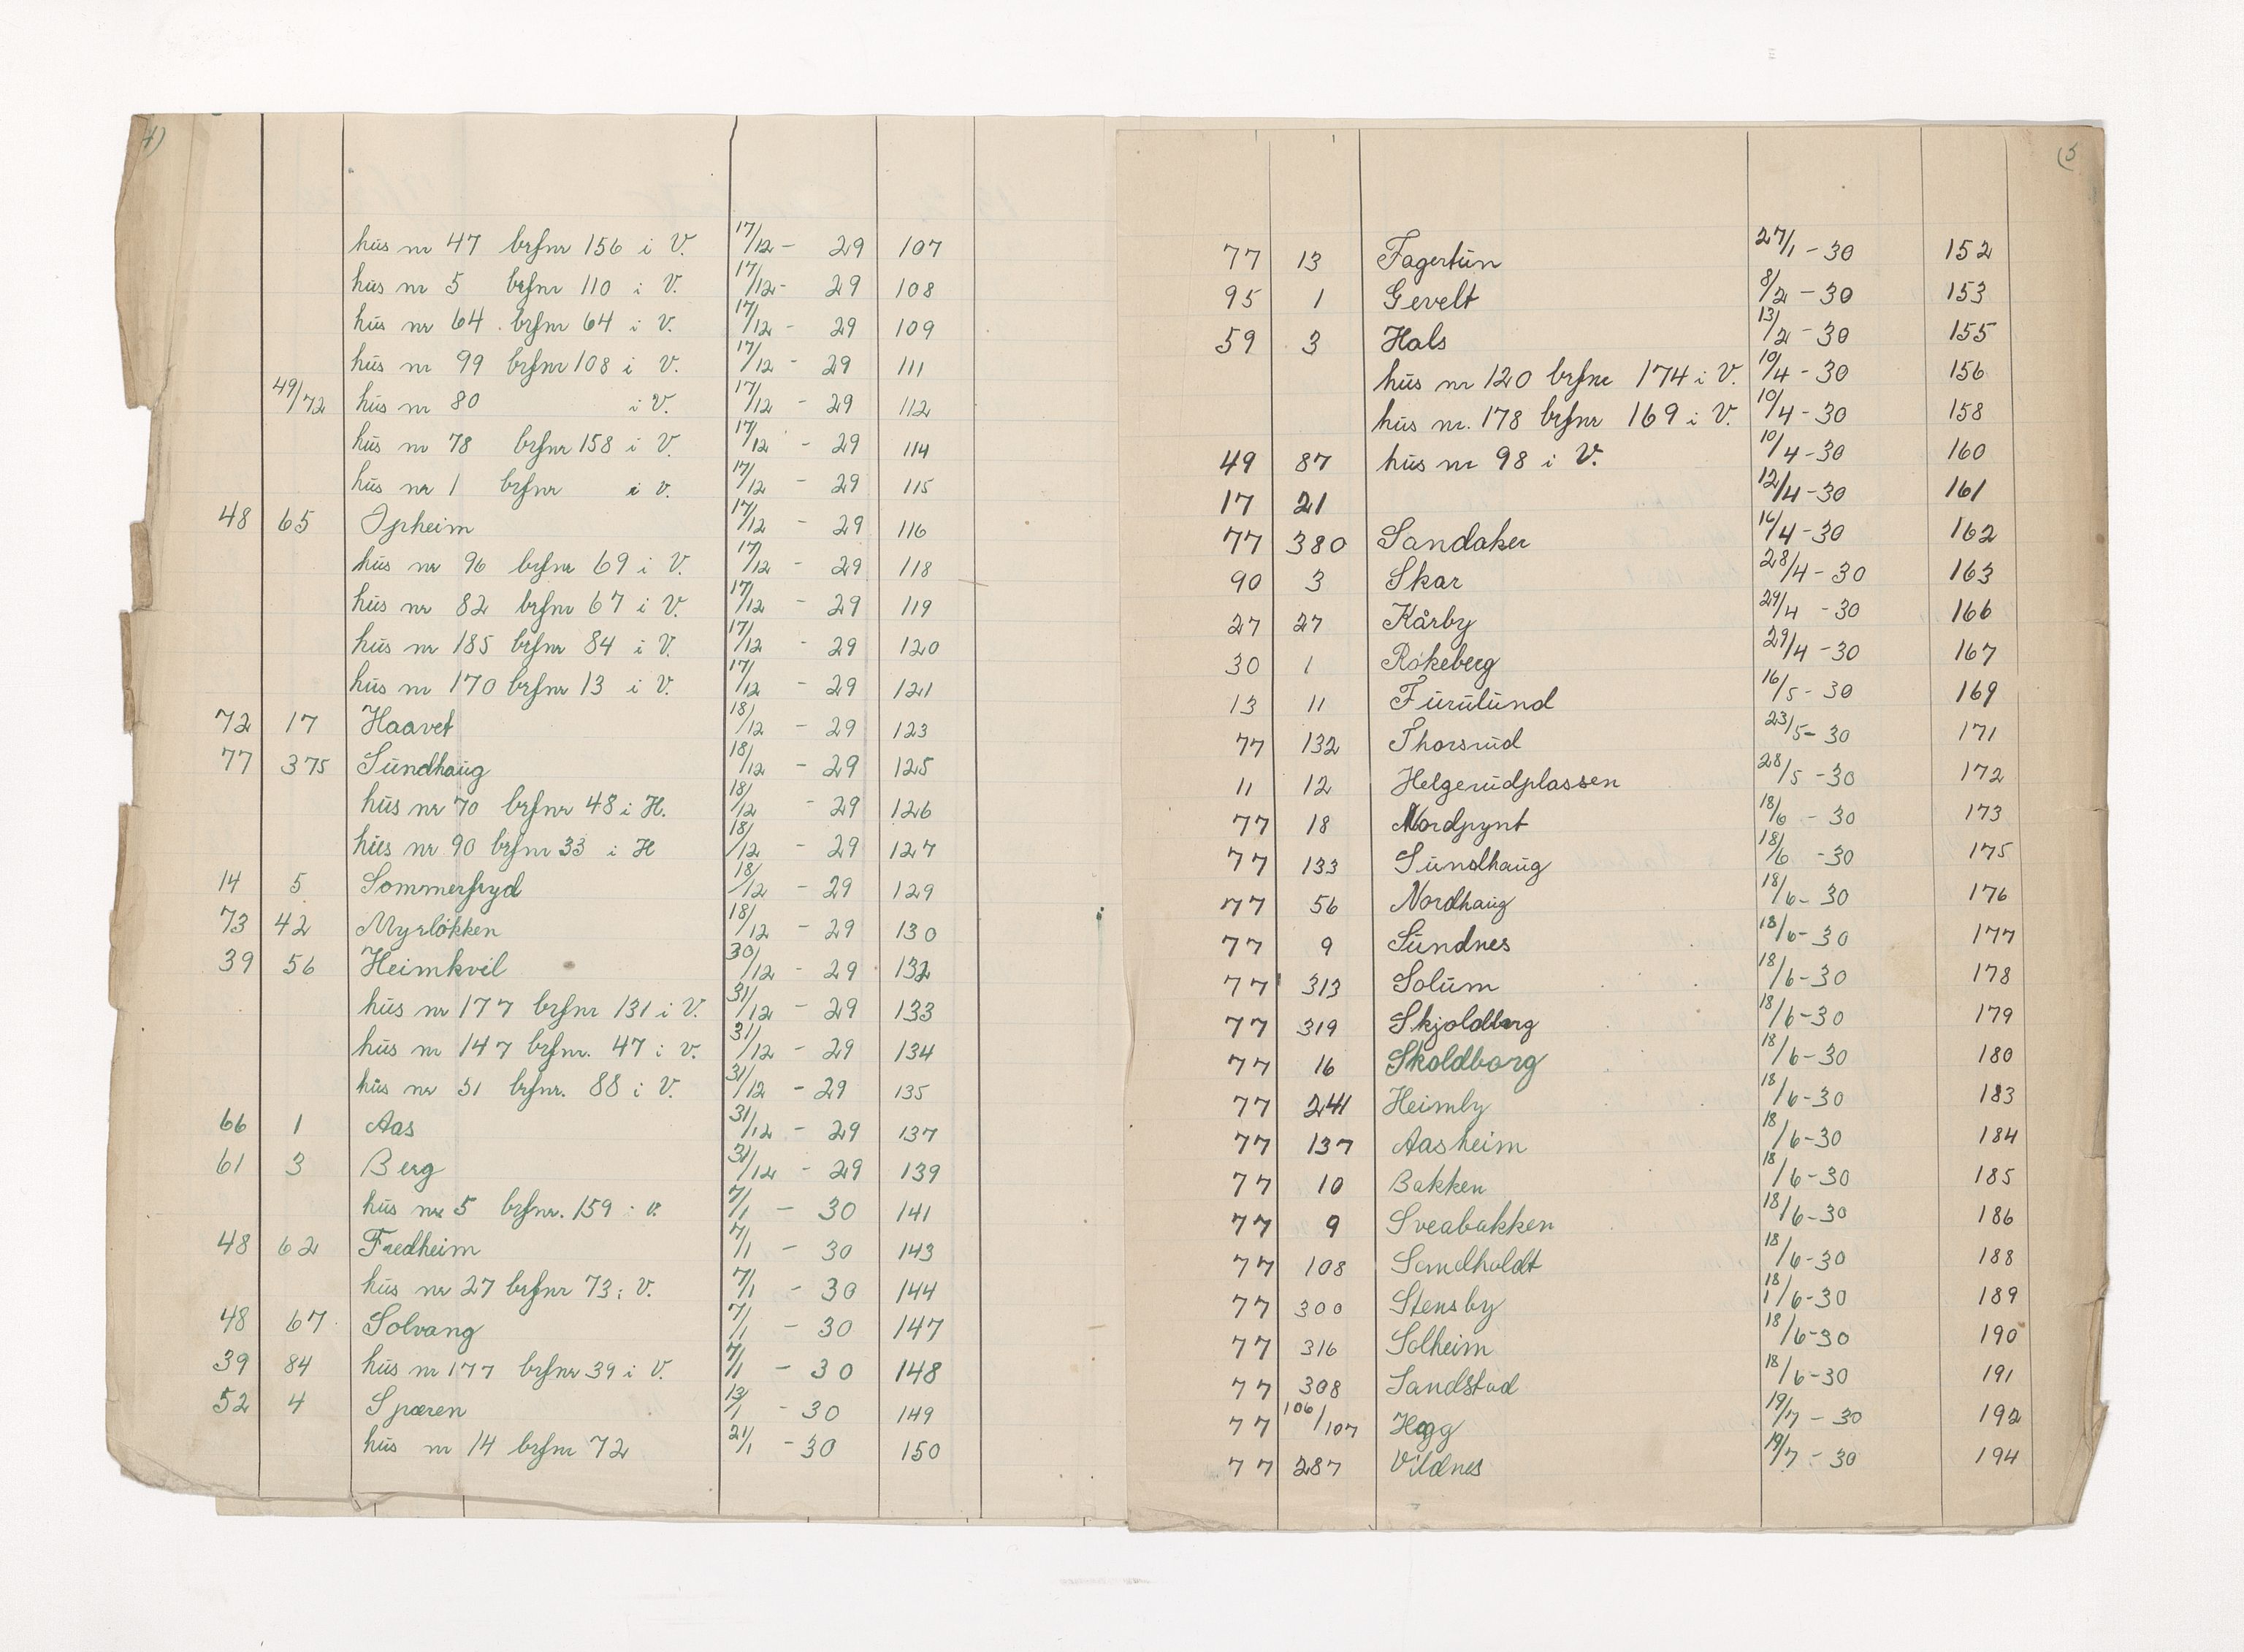 4)
hüs nr 47 brfnr 156 i V. 17/12 - 29 107
hüs nr 5 brfnr 110 i V. 17/12 - 29 108
hüs nr 64 brfnr 64 i V. 17/12 - 29 109
hüs nr 99 brfnr 108 i V. 17/12 - 29 111
49/72 hüs nr 80 i V. 17/12 - 29 112
hüs nr 78 brfnr 158 i V. 17/12 - 29 114
hüs nr 1 brfnr i V. 17/12 - 29 115
48 65 Opheim 17/12 - 29 116
hüs nr 96 brfnr 69 i V. 17/12 - 29 118
hüs nr 82 brfnr 67 i V. 17/12 - 29 119
hüs nr 185 brfnr 84 i V. 17/12 - 29 120
hüs nr 170 brfnr 13 i V. 17/12 - 29 121
72 17 Haavet 18/12 - 29 123
77 375 Sündhaüg 18/12 - 29 125
hüs nr 70 brfnr 48 i H. 18/12 - 29 126
hüs nr 90 brfnr 33 i H 18/12 - 29 127
14 5 Sommerfryd 18/12 - 29 129
73 42 Myrløkken 18/12 - 29 130
39 56 Heimkvil 30/12 - 29 132
hüs nr 177 brfnr 131 i V. 31/12 - 29 133
hüs nr 147 brfnr. 47 i V. 31/12 - 29 134
hüs nr 51 brfnr. 88 i V. 31/12 - 29 135
66 1 Aas 31/12 - 29 137
61 3 Berg 31/12 - 29 139
hüs nr 5 brfnr. 159 i V. 7/1 - 30 141
48 62 Fredheim 7/1 - 30 143
hüs nr 27 brfnr 73 i V. 7/1 - 30 144
48 67 Solvang 7/1 - 30 147
39 84 hüs nr 177 brfnr 39 i V. 7/1 - 30 148
52 4 Spæren 13/1 - 30 149
hüs nr 14 brfnr 72 21/1 - 30 150
(5
77 13 Fagertün 27/1 - 30 152
95 1 Gevelt 8/2 - 30 153
59 3 Hals 13/2 - 30 155
hüs nr 120 brfnr 174 i V. 10/4 - 30 156
hüs nr. 178 brfnr 169 i V. 10/4 - 30 158
49 87 hüs nr 98 i V. 10/4 - 30 160
17 21 12/4 - 30 161
77 380 Sandaker 16/4 - 30 162
90 3 Skar 28/4 - 30 163
27 27 Kårby 29/4 - 30 166
30 1 Røkeberg 29/4 - 30 167
13 11 Fürülünd 16/5 - 30 169
77 132 Thorsrüd 23/5 - 30 171
11 12 Helgerüdplassen 28/5 - 30 172
77 18 Nordpynt 18/6 - 30 173
77 133 Sündhaüg 18/6 - 30 175
77 56 Nordhaüg 18/6 - 30 176
77 9 Sündnes 18/6 - 30 177
77 313 Solüm 18/6 - 30 178
77 319 Skjoldberg 18/6 - 30 179
77 16 Skoldborg 18/6 - 30 180
77 241 Heimby 18/6 - 30 183
77 137 Aasheim 18/6 - 30 184
77 10 Bakken 18/6 - 30 185
77 9 Sveabakken 18/6 - 30 186
77 108 Sandholdt 18/6 - 30 188
77 300 Stensby 18/6 - 30 189
77 316 Solheim 18/6 - 30 190
77 308 Sandstad 18/6 - 30 191
77 106/107 Hegg 19/7 - 30 192
77 287 Vildnes 19/7 - 30 194